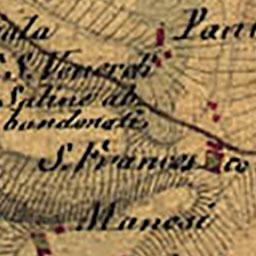 ala
Pant
S. Venerdi
Saline ab,
bandonati
S. Frances co
Manesi